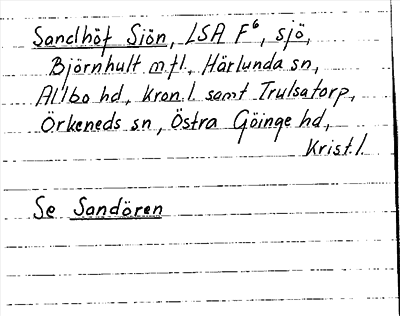 Sandhöf Siön, LSA F⁶, sjö,
Björnhult m.fl., Härlunda sn,
Allbo hd, Kron.l. samt Trulsatorp,
Örkeneds sn, Östra Göinge hd,
Krist.l.
Se Sandören